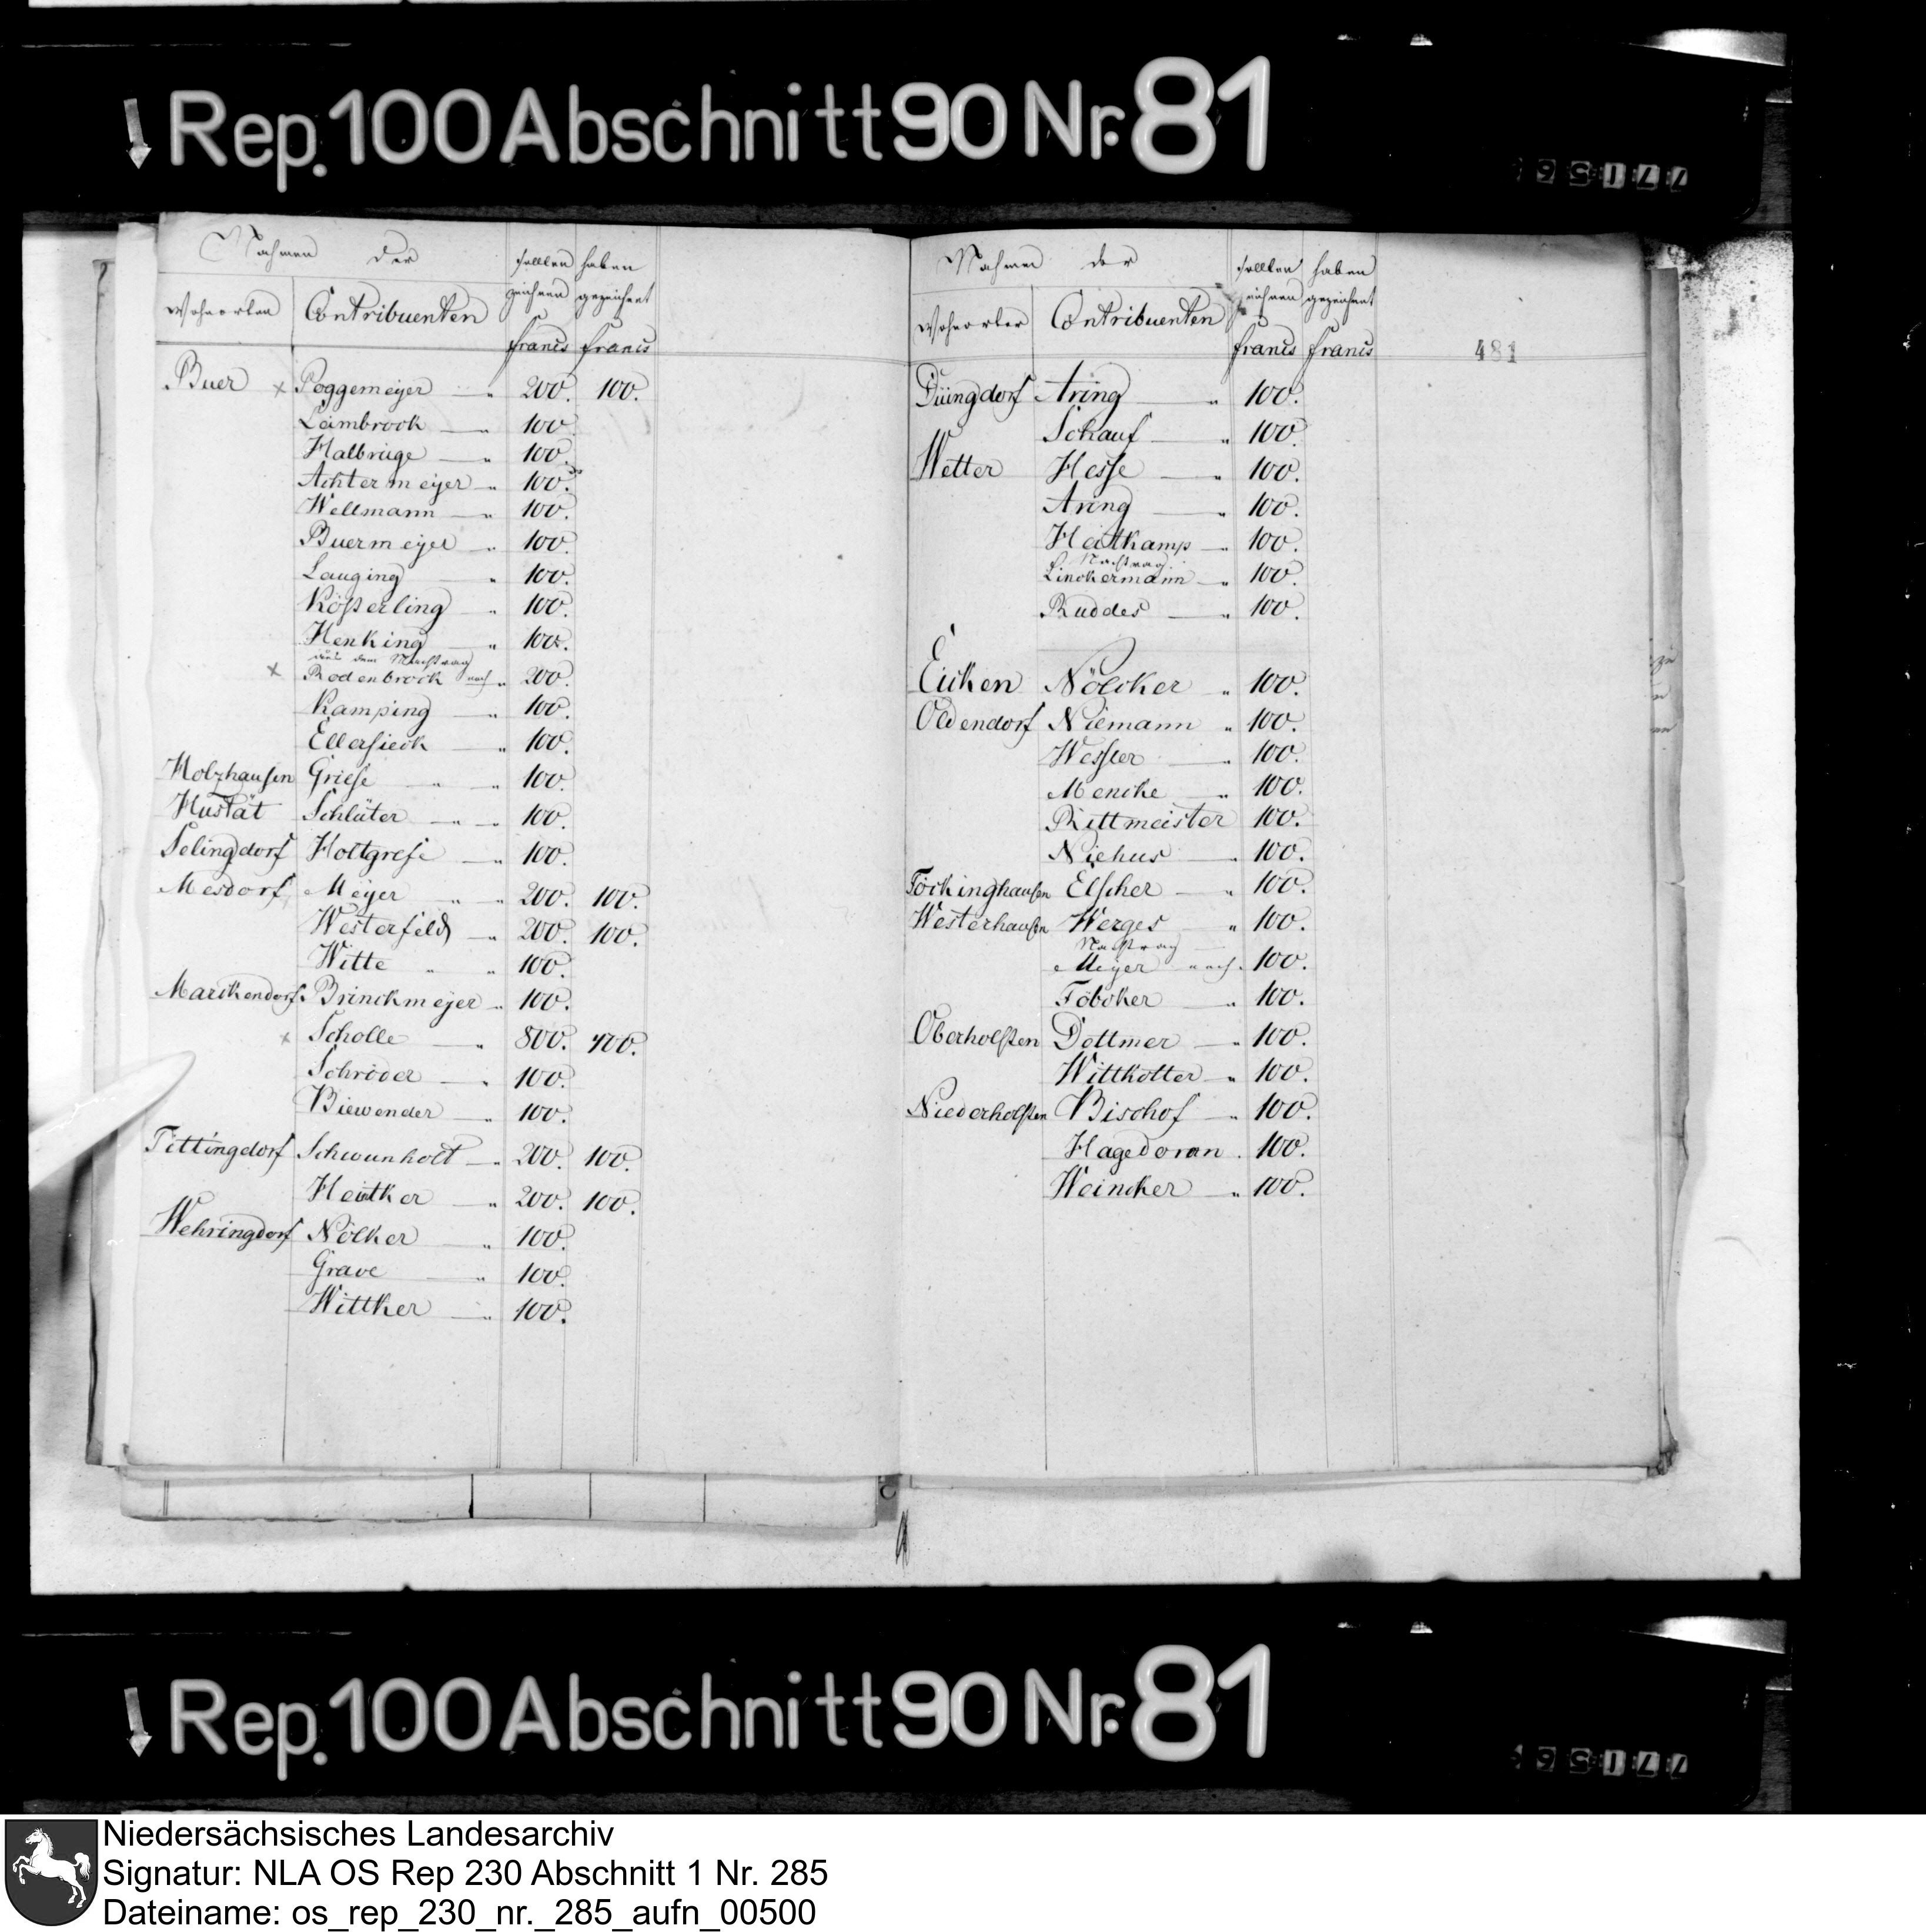 Rep. 100 Abschnitt 90 Nr. 81
Nahmen der
sollten zeichnen francs
haben gezeichnet francs
Wohnorten Contribuenten
Buer x Poggemeijer 200. 100.
Leimbrock 100.
Halbrüge 100.
Achtermeijer 100.
Wellmann 100.
Buermeijer 100.
Lauging 100.
Kößerling 100.
Henking 100.
aus dem Nachtrag
x Rodenbrock noch 200.
Kamping 100.
Ellersieck 100.
Holzhausen Griese 100.
Hustät Schlüter 100.
Selingdorf Holtgrefe 100.
Mesdorf Meijer 200. 100.
Westerfeld 200. 100.
Witte 100.
Marckendorf Brinckmejer 100.
x Scholle 800. 400.
Schröder 100.
Biewender 100.
Tittingdorf Schwunholt 200. 100.
Heitker 200. 100.
Wehringdorf Nölker 100.
Grave 100.
Wittker 100.
Nahmen der
sollten zeichnen francs
haben gezeichnet francs
Wohnorter Contribuenten
481
Düingdorf Aring 100.
Schauf 100.
Wetter Hesse 100.
Aring 100.
Heitkamp 100.
Nachtrag
Linckermann 100.
Buddes 100.
Eicken Nölcker 100.
Oldendorf Niemann 100.
Wessler 100.
Mencke 100.
Rittmeister 100.
Niehus 100.
Föckinghausen Elscher 100.
Westerhausen Werges 100.
Nachtrag
Meijer noch 100.
Föbcker 100.
Oberholsten Dettmer 100.
Wittkötter 100.
Niederholsten Bischof 100.
Hagedoran 100.
Weincker 100.
Rep. 100 Abschnitt 90 Nr. 81
Niedersächsisches Landesarchiv
Signatur: NLA OS Rep 230 Abschnitt 1 Nr. 285
Dateiname: os_rep_230_nr._285_aufn_00500